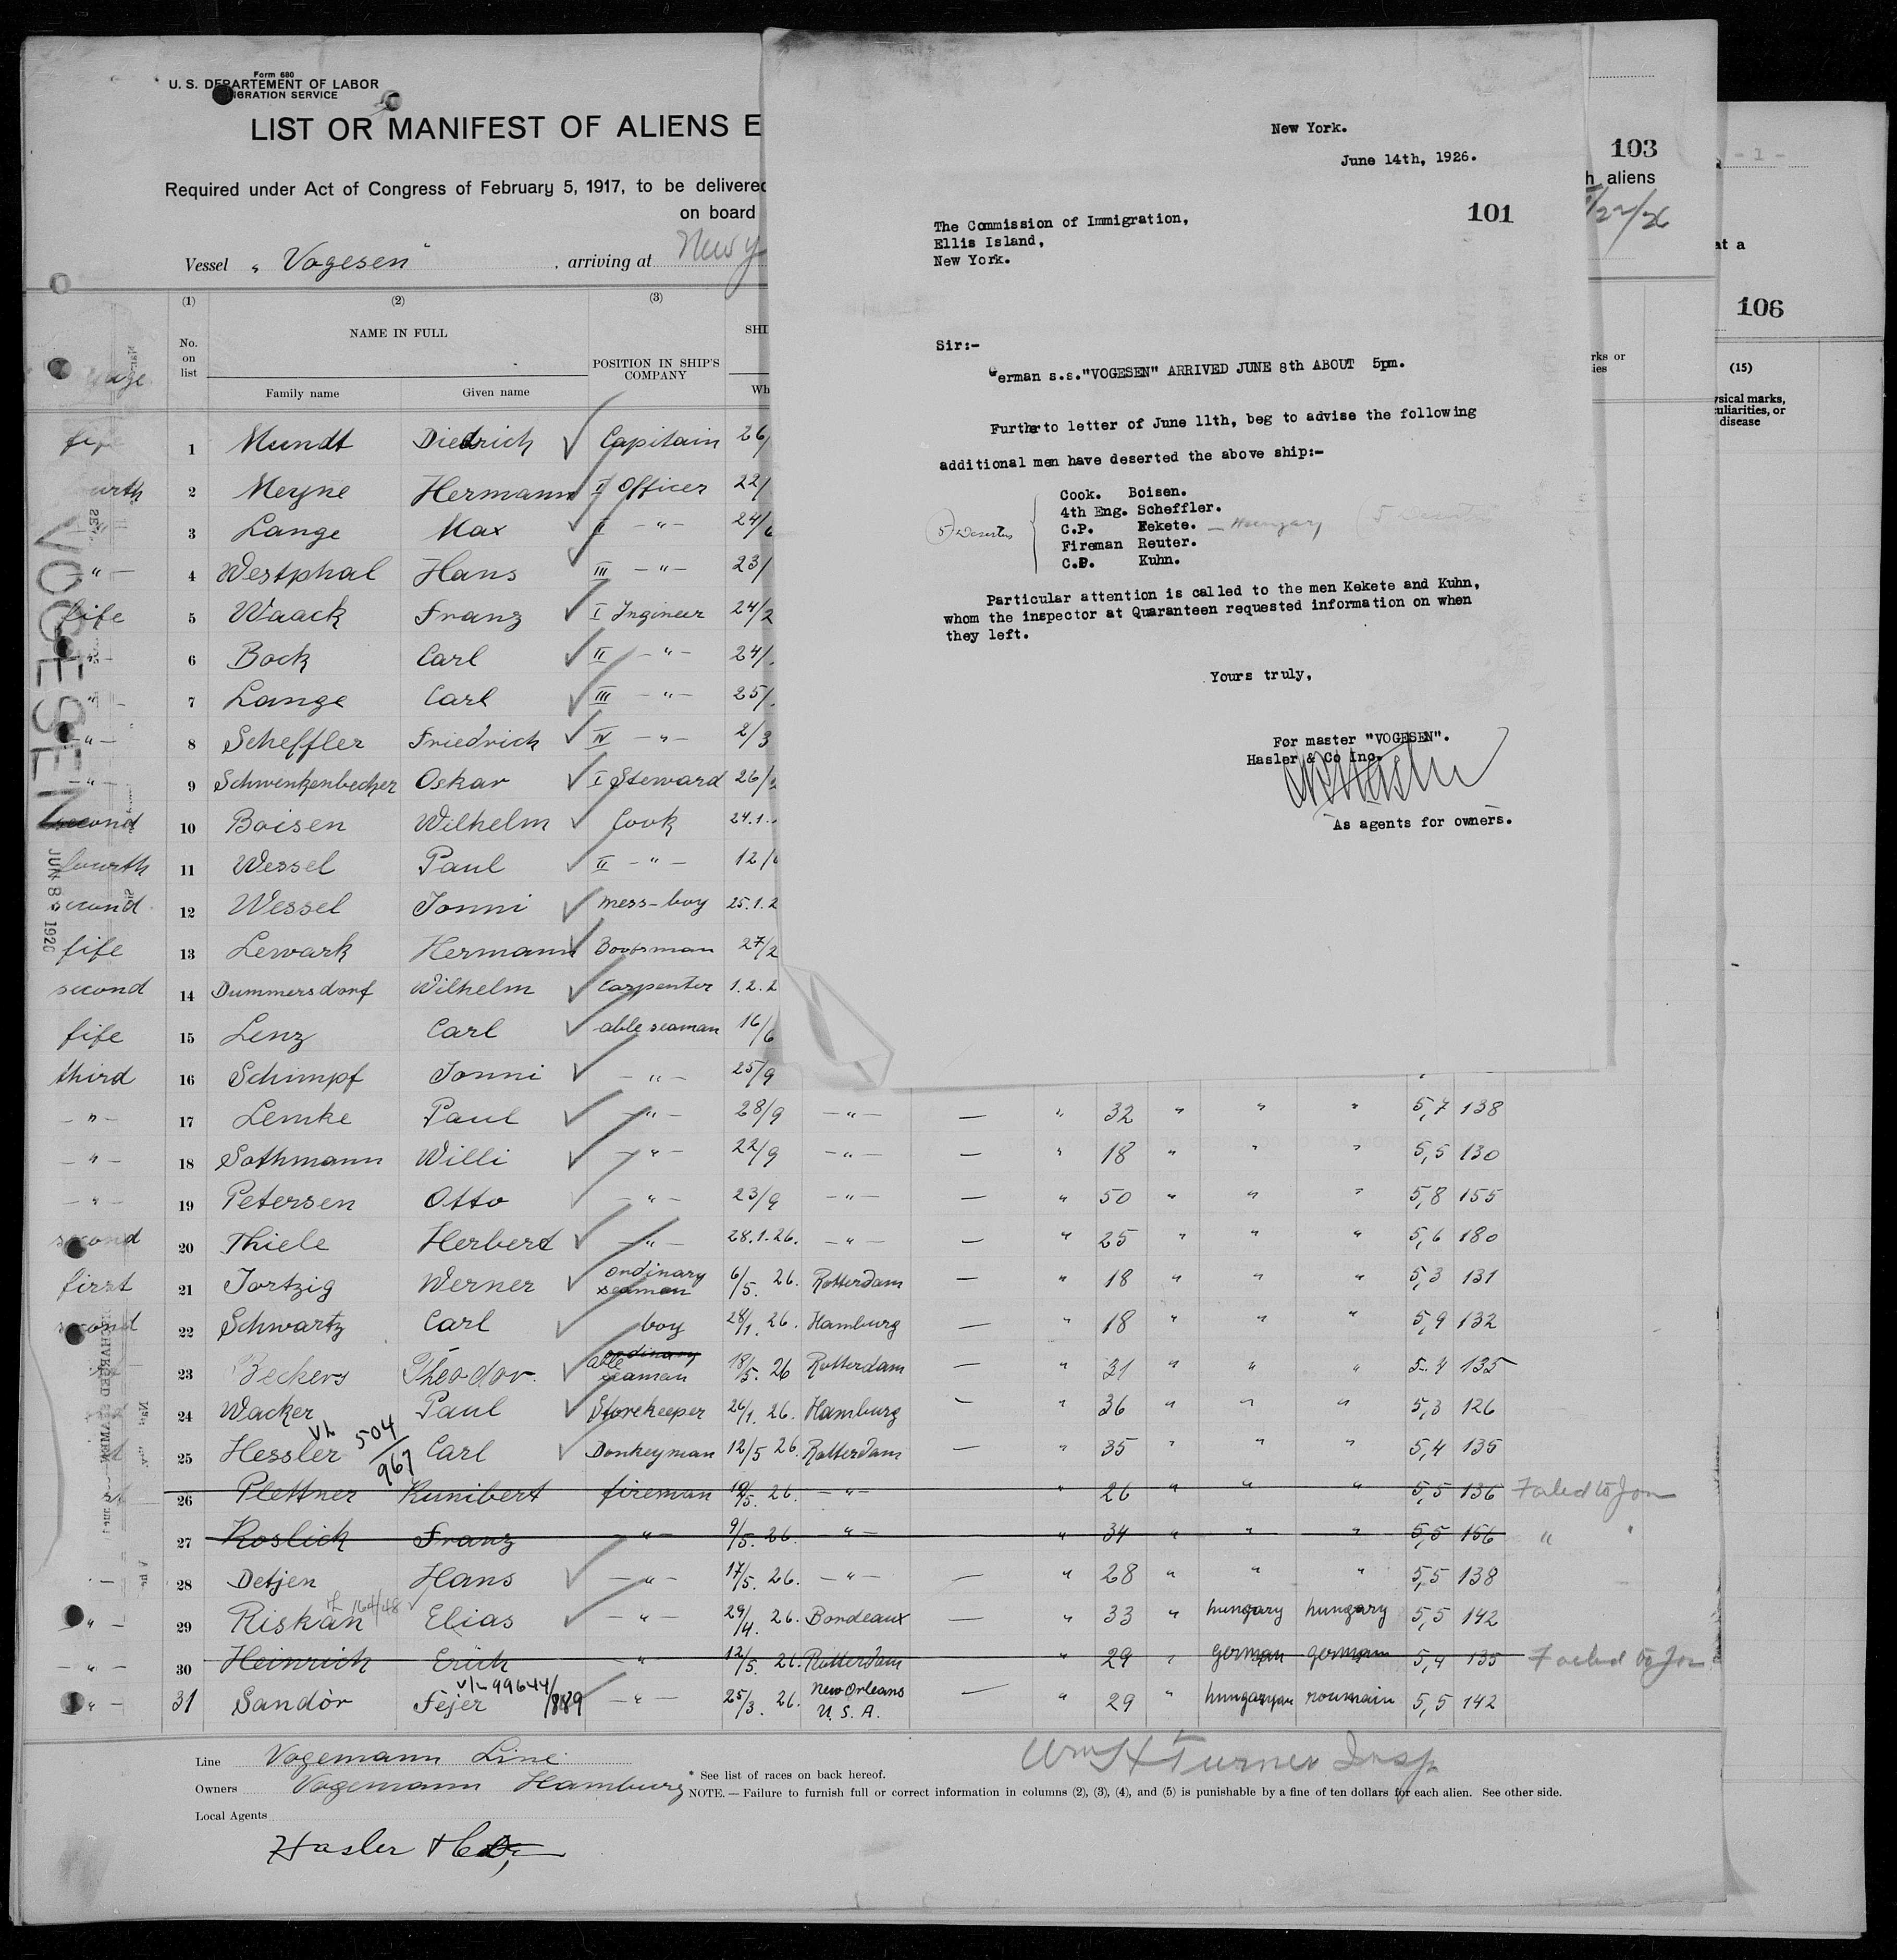 Form 680
U. S. DEPARTEMENT OF LABOR
IGRATION SERVICE
LIST OR MANIFEST OF ALIENS E
Required under Act of Congress of February 5, 1917, to be delivered
on board
Vessel „ Vogesen " . arriving at New y
(1) (2) (3)
No. on list
NAME IN FULL
Family name Given name
POSITION IN SHIP'S COMPANY
SHI
Wh
VOGESEN
JUN 8 1926
1 Mundt Diedrich ✓ Capitain 26/
2 Meyne Hermann I Officer 22/
— " — 3 Lange Max ✓ II — " — 24/6
— " — 4 Westphal Hans ✓ III — " — 23/
fife 5 Waack Franz ✓ I Ingineer 24/2
— " — 6 Bock Carl ✓ II — " — 24/
— " — 7 Lange Carl ✓ III — " — 25/
— " — 8 Scheffler Friedrich ✓ IV — " — 2/3
— " — 9 Schwenkenbecher Oskar ✓ I Steward 26/
second 10 Boisen Wilhelm ✓ Cook 24.1.
fourth 11 Wessel Paul ✓ II — " — 12/
second 12 Wessel Jonni ✓ mess-boy 25.1.2
fife 13 Lewark Hermann ✓ Bootsman 27/2
second 14 Dummersdorf Wilhelm ✓ Carpenter 1.2.2
fife 15 Lenz Carl ✓ able seaman 16/6
third 16 Schimpf Jonni ✓ — " — 25/9
— " — 17 Lemke Paul ✓ — " — 28/9 — " — — " 32 " " " 5,7 138
— " — 18 Sothmann Willi ✓ — " — 22/9 — " — — " 18 " " " 5,5 130
— " — 19 Petersen Otto ✓ — " — 23/9 — " — — " 50 " " " 5,8 155
second 20 Thiele Herbert ✓ — " — 28.1.26. — " — — " 25 " " " 5,6 180
first 21 Jortzig Werner ✓ ordinary seaman 6/5. 26. Rotterdam — " 18 " " " 5,3 131
second 22 Schwartz Carl ✓ boy 28/1. 26. Hamburg — " 18 " " " 5,9 132
23 Beckers Theodor. ✓ able ordinary seaman 18/5. 26 Rotterdam — " 31 " " " 5.4 135
24 Wacker Paul ✓ Storekeeper 26/1. 26. Hamburg — " 36 " " " 5,3 126
25 Hessler 504/967 Carl ✓ Donkeyman 12/5 26. Rotterdam — " 35 " " " 5,4 135
26 Plettner Kunibert fireman 19/5. 26. — " — " 26 " " " 5,5 136 Failed to Join
27 Koslick Franz — " — 9/5. 26. — " — " 34 " " " 5,5 156 " "
28 Detjen Hans ✓ — " — 17/5. 26. — " — — " 28 " " " 5,5 138
— " — 29 Riskan Elias ✓ — " — 29/4. 26. Bordeaux — " 33 " hungary hungary 5,5 142
— " — 30 Heinrich Erich " 12/5. 26. Rotterdam " 29 " german german 5,4 135 Failed to Join
— " — 31 Sandòr Féjer v/L 99644/889 — " — 25/3. 26. New Orleans U. S. A. — " 29 " hungaryan roumain 5,5 142
Line Vogemann Line
Owners Vogemann Hamburg
Local Agents
Hasler & Co,
Wm H Turner Insp
* See list of races on back hereof.
NOTE. — Failure to furnish full or correct information in columns (2), (3), (4), and (5) is punishable by a fine of ten dollars for each alien. See other side.
New York.
June 14th, 1926.
101
The Commission of Immigration,
Ellis Island,
New York.
Sir:-
German s.s."VOGESEN" ARRIVED JUNE 8th ABOUT 5pm.
Furtherto letter of June 11th, beg to advise the following
additional men have deserted the above ship:-
Cook. Boisen.
4th Eng. Scheffler.
C.P. Kekete. — Hungary
Fireman Reuter.
C.P. Kuhn.
Particular attention is called to the men Kekete and Kuhn,
whom the inspector at Quaranteen requested information on when
they left.
Yours truly,
For master "VOGESEN".
Hasler & Co Inc.
As agents for owners.
103
h aliens
/22/26
rks or
ies
- 1 -
at a
106
(15)
ysical marks,
uliarities, or
disease